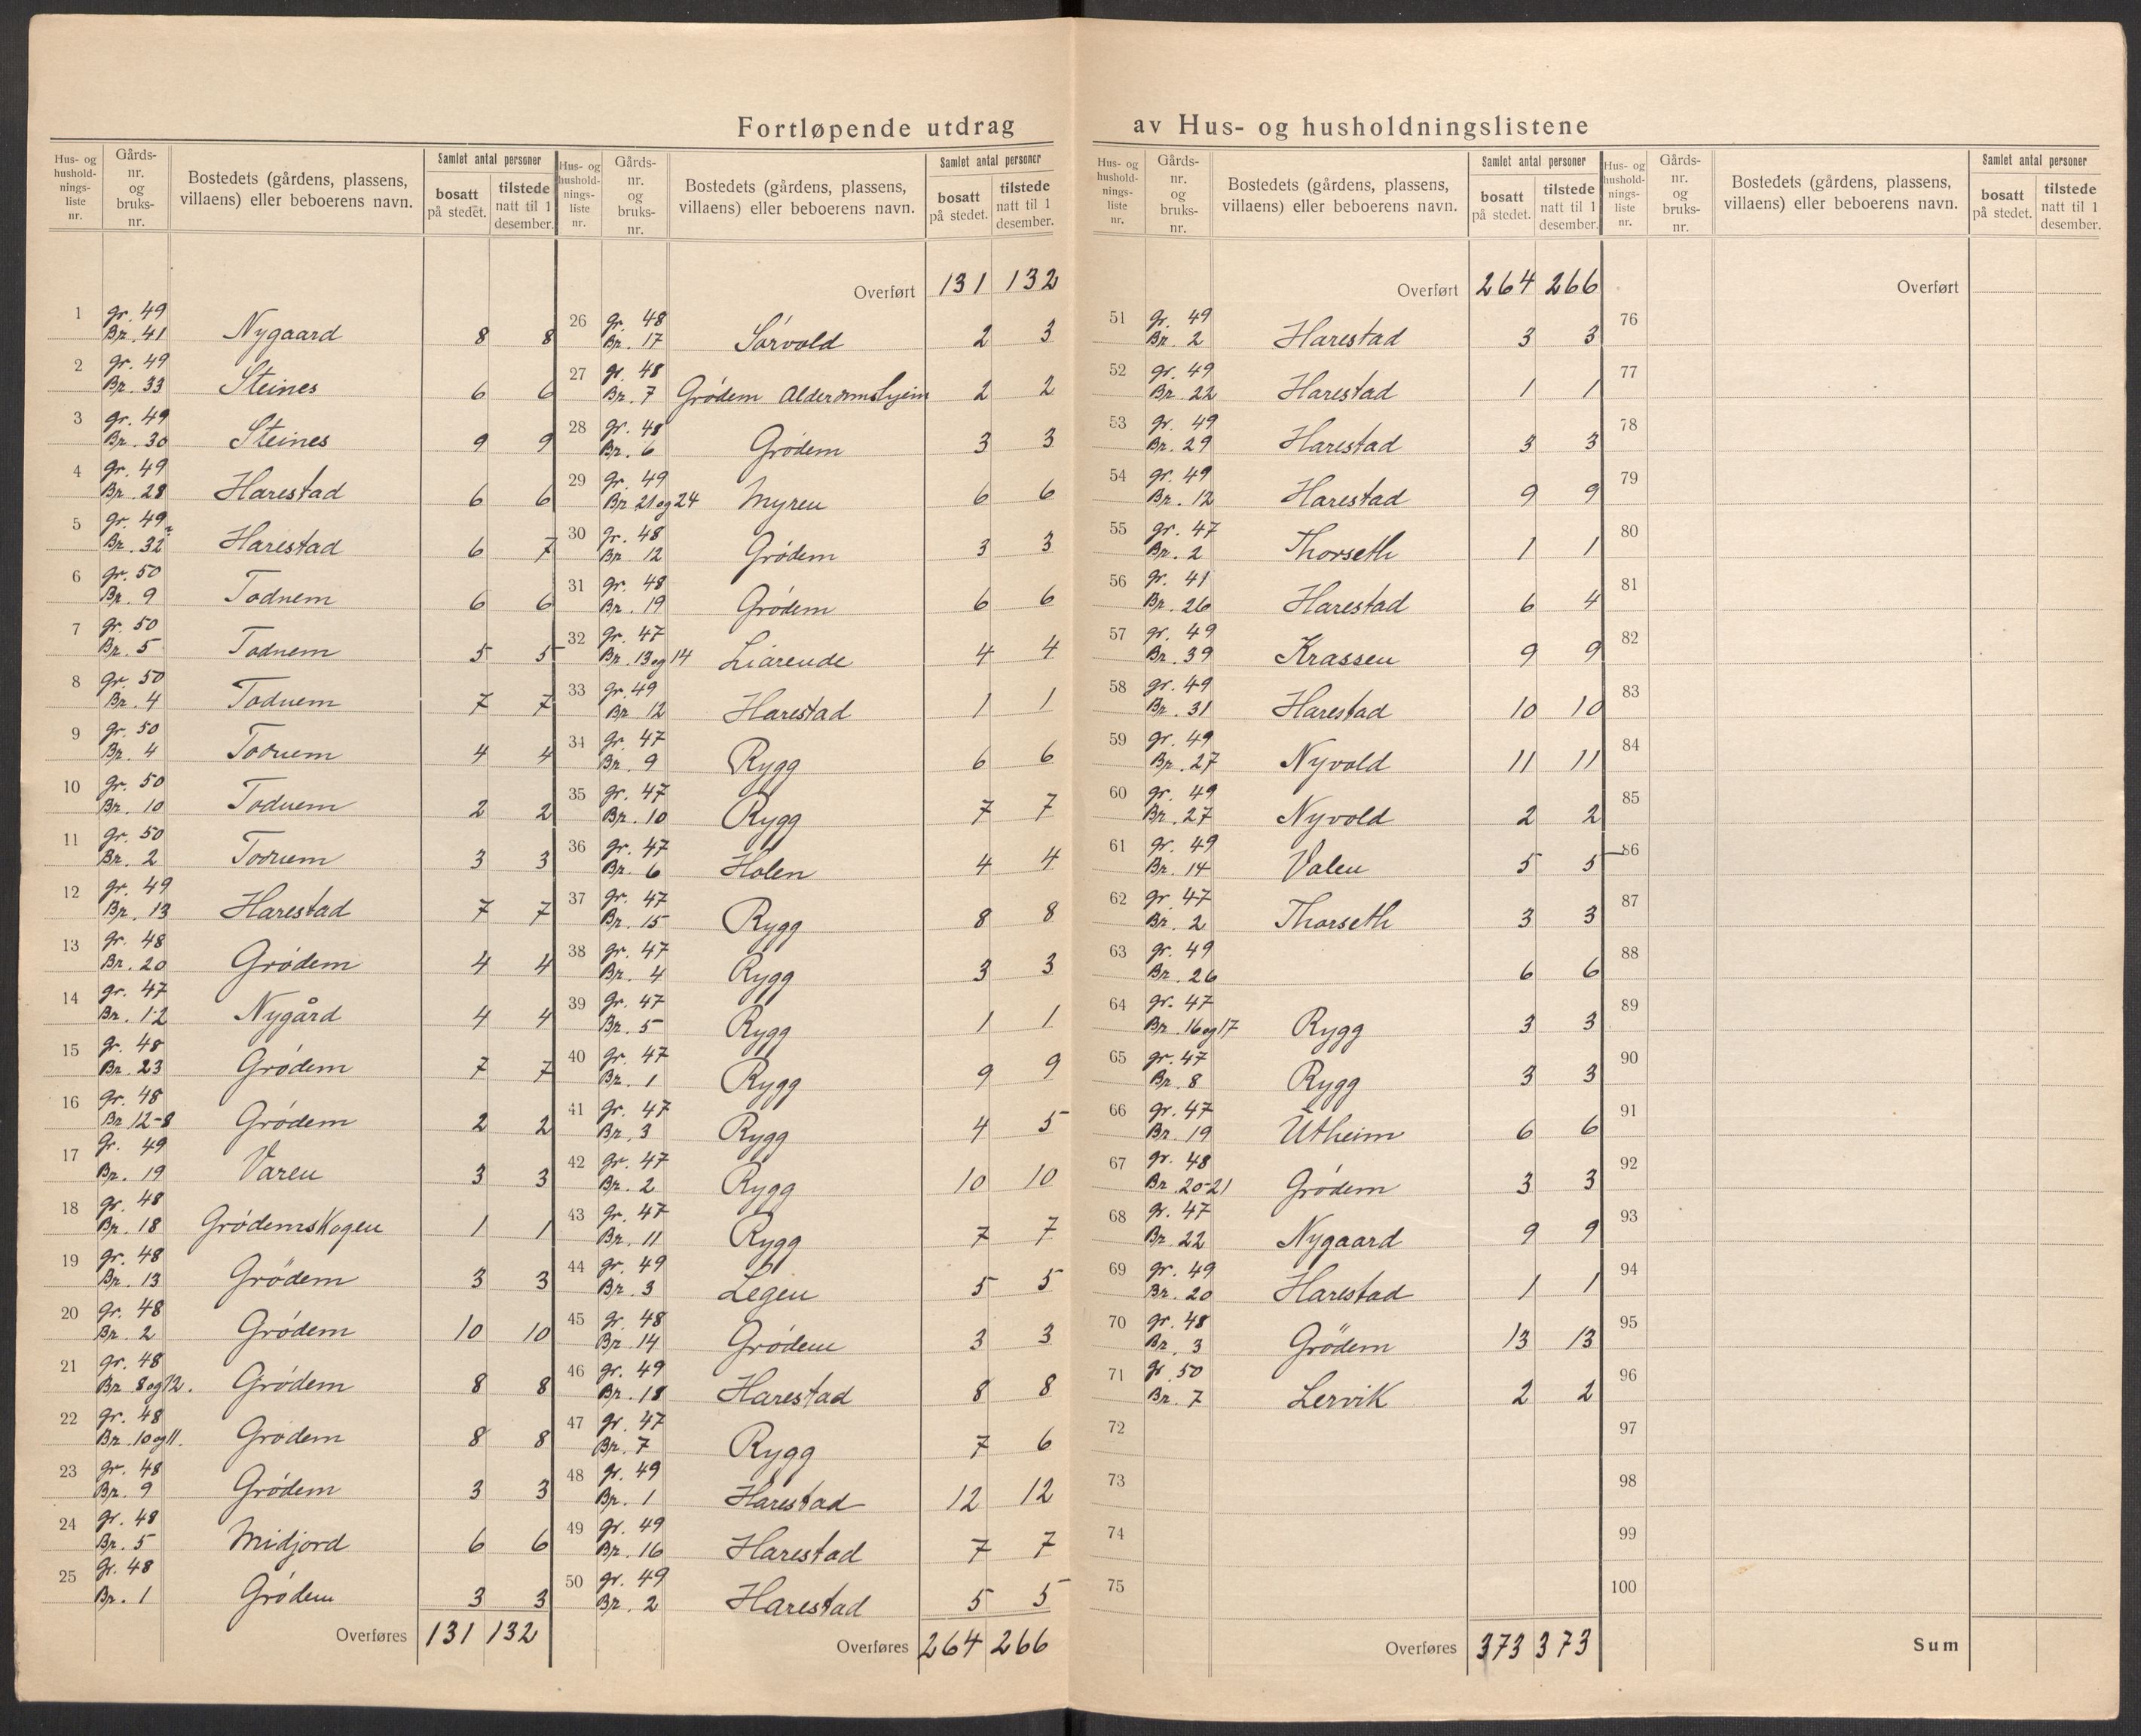 Fortløpende utdrag av Hus- og husholdningslistene
Hus- og husholdningsliste nr. | Gårds-nr. og bruks-nr. | Bostedets (gårdens, plassens, villaens) eller beboerens navn. | Samlet antal personer bosatt på stedet. | tilstede natt til 1 desember.
1 gr. 49 Br. 41 Nygaard 8 8
2 gr. 49 Br. 33 Steines 6 6
3 gr. 49 Br. 30 Steines 9 9
4 gr. 49 Br. 28 Harestad 6 6
5 gr. 49 Br. 32 Harestad 6 7
6 gr. 50 Br. 9 Todnem 6 6
7 gr. 50 Br. 5 Todnem 5 5
8 gr. 50 Br. 4 Todnem 7 7
9 gr. 50 Br. 4 Todnem 4 4
10 gr. 50 Br. 10 Todnem 2 2
11 gr. 50 Br. 2 Todnem 3 3
12 gr. 49 Br. 13 Harestad 7 7
13 gr. 48 Br. 20 Grødem 4 4
14 gr. 47 Br. 12 Nygård 4 4
15 gr. 48 Br. 23 Grødem 7 7
16 gr. 48 Br 12-8 Grødem 2 2
17 gr. 49 Br. 19 Varen 3 3
18 gr. 48 Br. 18 Grødemskogen 1 1
19 gr. 48 Br. 13 Grödem 3 3
20 gr. 48 Br. 2 Grødem 10 10
21 gr. 48 Br 8 og 12. Grødem 8 8
22 gr. 48 Br. 10 og 11. Grødem 8 8
23 gr. 48 Br. 9 Grødem 3 3
24 gr. 48 Br. 5 Midjord 6 6
25 gr. 48 Br. 1 Grødem 3 3
Overføres 131 132
Hus- og husholdningsliste nr. | Gårds-nr. og bruks-nr. | Bostedets (gårdens, plassens, villaens) eller beboerens navn. | Samlet antal personer bosatt på stedet. | tilstede natt til 1 desember.
Overført 131 132
26 gr. 48 Br. 17 Sørvold 2 3
27 gr. 48 Br. 7 Grødem Alderdomshjem 2 2
28 gr. 48 Br. 6 Grødem 3 3
29 gr. 49 Br 21 og 24 Myren 6 6
30 gr. 48 Br. 12 Grødem 3 3
31 gr. 48 Br. 19 Grødem 6 6
32 gr. 47 Br. 13 og 14 Liarende 4 4
33 gr. 49 Br 12 Harestad 1 1
34 gr. 47 Br. 9 Rygg 6 6
35 gr. 47 Br. 10 Rygg 7 7
36 gr. 47 Br. 6 Holen 4 4
37 gr. 47 Br. 15 Rygg 8 8
38 gr. 47 Br. 4 Rygg 3 3
39 gr. 47 Br. 5 Rygg 1 1
40 gr. 47 Br. 1 Rygg 9 9
41 gr. 47 Br. 3 Rygg 4 5
42 gr. 47 Br. 2 Rygg 10 10
43 gr. 47 Br. 11 Rygg 7 7
44 gr. 49 Br. 3 Legen 5 5
45 gr. 48 Br. 14 Grødem 3 3
46 gr. 49 Br. 18 Harestad 8 8
47 gr. 47 Br. 7 Rygg 7 6
48 gr. 49 Br. 1 Harestad 12 12
49 gr. 49 Br. 16 Harestad 7 7
50 gr. 49 Br. 2 Harestad 5 5
Overføres 264 266
Hus- og husholdningsliste nr. | Gårds-nr. og bruks-nr. | Bostedets (gårdens, plassens, villaens) eller beboerens navn. | Samlet antal personer bosatt på stedet. | tilstede natt til 1 desember.
Overført 264 266
51 gr. 49 Br. 2 Harestad 3 3
52 gr. 49 Br. 22 Harestad 1 1
53 gr. 49 Br. 29 Harestad 3 3
54 gr. 49 Br. 12 Harestad 9 9
55 gr. 47 Br. 2 Thorseth 1 1
56 gr. 41 Br. 26 Harestad 6 4
57 gr. 49 Br. 39 Krassen 9 9
58 gr. 49 Br. 31 Harestad 10 10
59 gr. 49 Br. 27 Nyvold 11 11
60 gr. 49 Br. 27 Nyvold 2 2
61 gr. 49 Br. 14 Valen 5 5
62 gr. 47 Br. 2 Thorseth 3 3
63 gr. 49 Br. 26 6 6
64 gr. 47 Br. 16 og 17 Rygg 3 3
65 gr. 47 Br. 8 Rygg 3 3
66 gr. 47 Br. 19 Utheim 6 6
67 gr. 48 Br. 20-21 Grødem 3 3
68 gr. 47 Br. 22 Nygaard 9 9
69 gr. 49 Br. 20 Harestad 1 1
70 gr. 48 Br. 3 Grödem 13 13
71 gr. 50 Br. 7 Lervik 2 2
72
73
74
75
Overføres 373 373
Hus- og husholdningsliste nr. | Gårds-nr. og bruks-nr. | Bostedets (gårdens, plassens, villaens) eller beboerens navn. | Samlet antal personer bosatt på stedet. | tilstede natt til 1 desember.
Overført
76
77
78
79
80
81
82
83
84
85
86
87
88
89
90
91
92
93
94
95
96
97
98
99
100
Sum